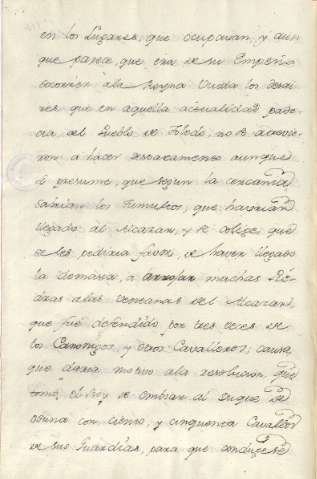 en los Lugares, que ocupavan, y aun
que parea, que era de su Empeño
socorrer ála Reyna Viuda los desai
res que en aquella actualidad pade
cia, del Pueblo de Toledo, no se atrevie
ron a hacer destacamento aunque
se presume, que segun la cercanía
sabian los tumultos, que havian
llegado al Alcazar, y se colige que
se les pediria favor, de haver llegado
la demasia, à arrojar muchas Pie
dras alas ventanas del Alcazar,
que fue defendido por tres veces de
los Canonigos, y otros Cavalleros; causa
que daria motivo ala resolucion, que
tomó el Rey de embiar al Duque de
Osuna con ciento, y cinquenta Cavallos
de sus Guardias, para que conduxese